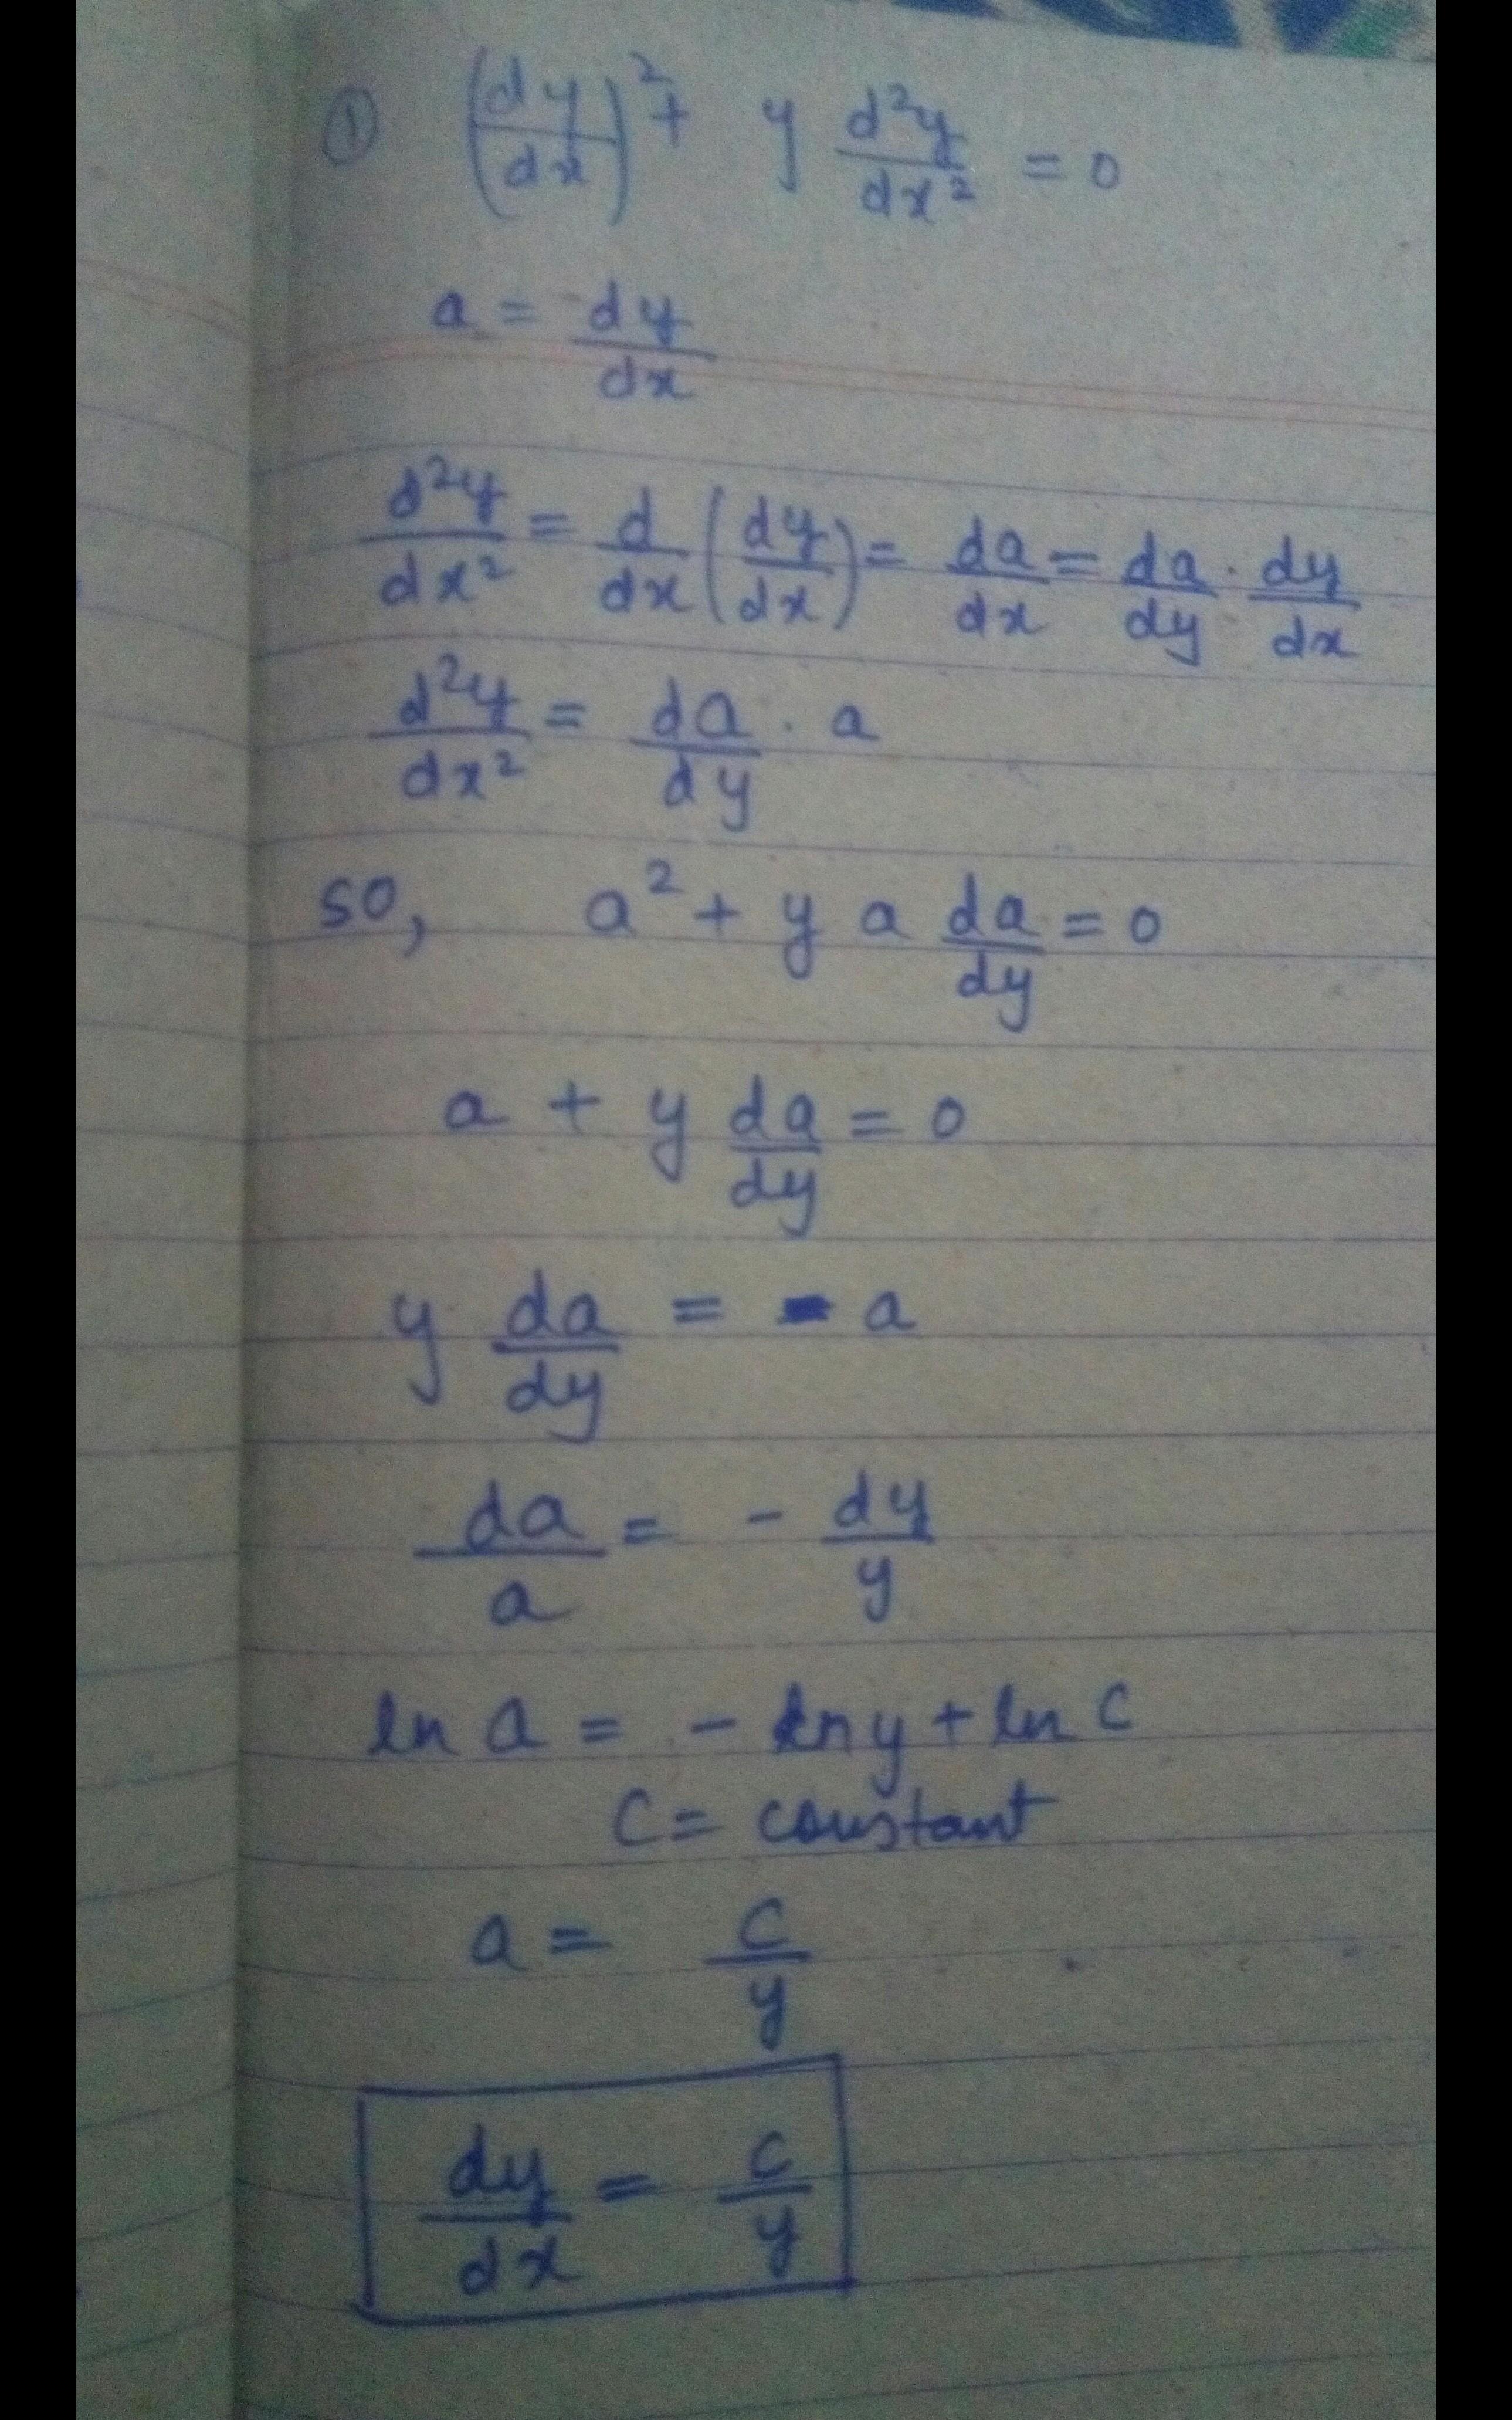 ① (dy/dx)² + y d²y/dx² = 0
a = dy/dx
d²y/dx² = d/dx (dy/dx) = da/dx = da/dy · dy/dx
d²y/dx² = da/dy · a
so, a² + y a da/dy = 0
a + y da/dy = 0
y da/dy = - a
da/a = - dy/y
ln a = - ln y + ln C
C = constant
a = C/y
dy/dx = C/y